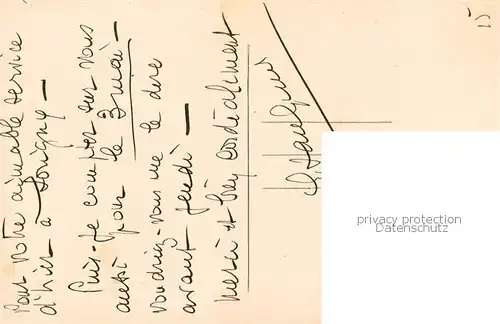 Pour votre aimable service
d'hier à Sorigny —
Puis-je compter sur vous
aussi pour le 3 mai —
Voudriez-vous me le dire
avant jeudi —
merci et bien cordialement
15
privacy protection
Datenschutz